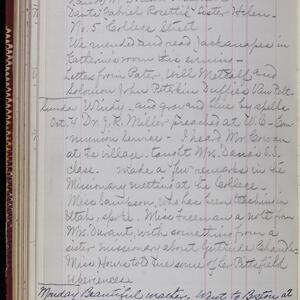 Dante Gabriel Rosetti's sister Helen
No. 5 College Street
We mended and read Jackanapes in
Katherine's room this evening
Letters from Pater, Will Metcalf and
Solomon John Peterkin Duffie Van Pelt
Sunday Windy and gray and blue by spells
Oct. 4 Dr. J. R. Miller preached at W. C. Com-
munion Service - I heard Mr. Cowan
at the village. taught Mrs. Danas S.S.
class. made a few remarks in the
Missionary meeting at the College.
Miss Sampson, who has been teaching in
Utah, spoke. Miss Freeman a note from
Mrs. Durant with something from a
sister missionary about Gertrude Chandler
Miss Hows told me some of her Pittsfield
experiences
Monday Beautiful weather. Went to Boston at